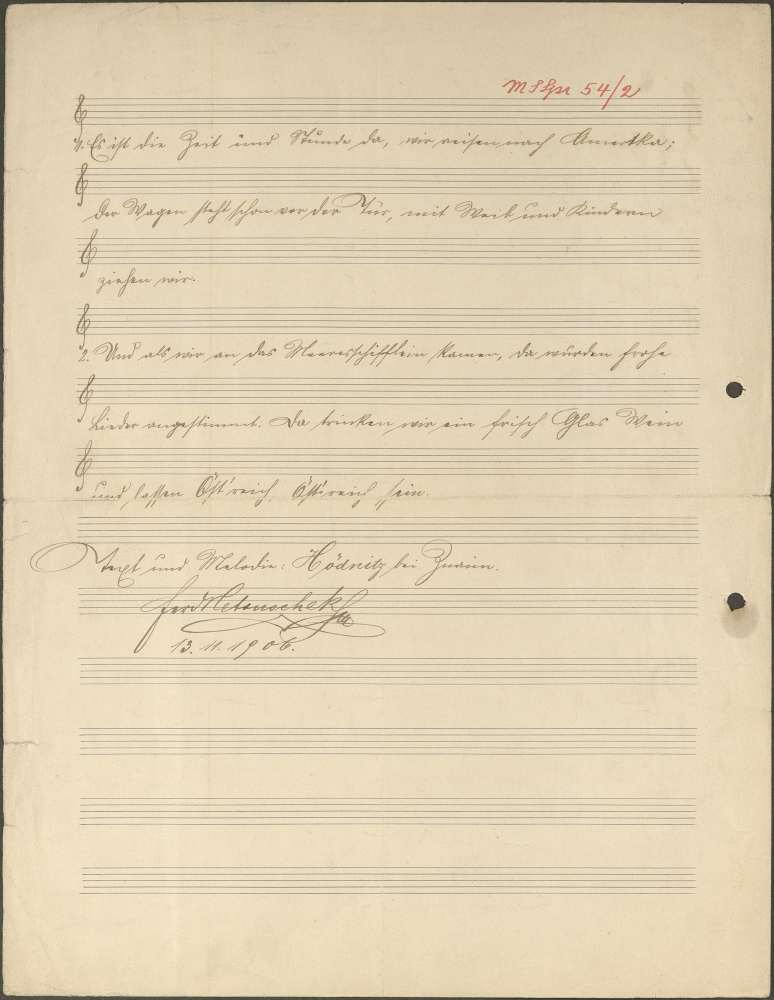 MS Spr 54/2
1. Es ist die Zeit und Stunde da, wir reisen nach Amerika;
der Wagen steht schon vor der Tür, mit Weib und Kindern
ziehen wir.
2. Und als wir an das Meeresschifflein kamen, da wurden frohe
Lieder angestimmt. Da trinken wir ein frisch Glas Wein
und lassen Öst'reich Öst'reich sein.
Text und Melodie: Hödnitz bei Znaim.
Ferd
13. 11. 1906.